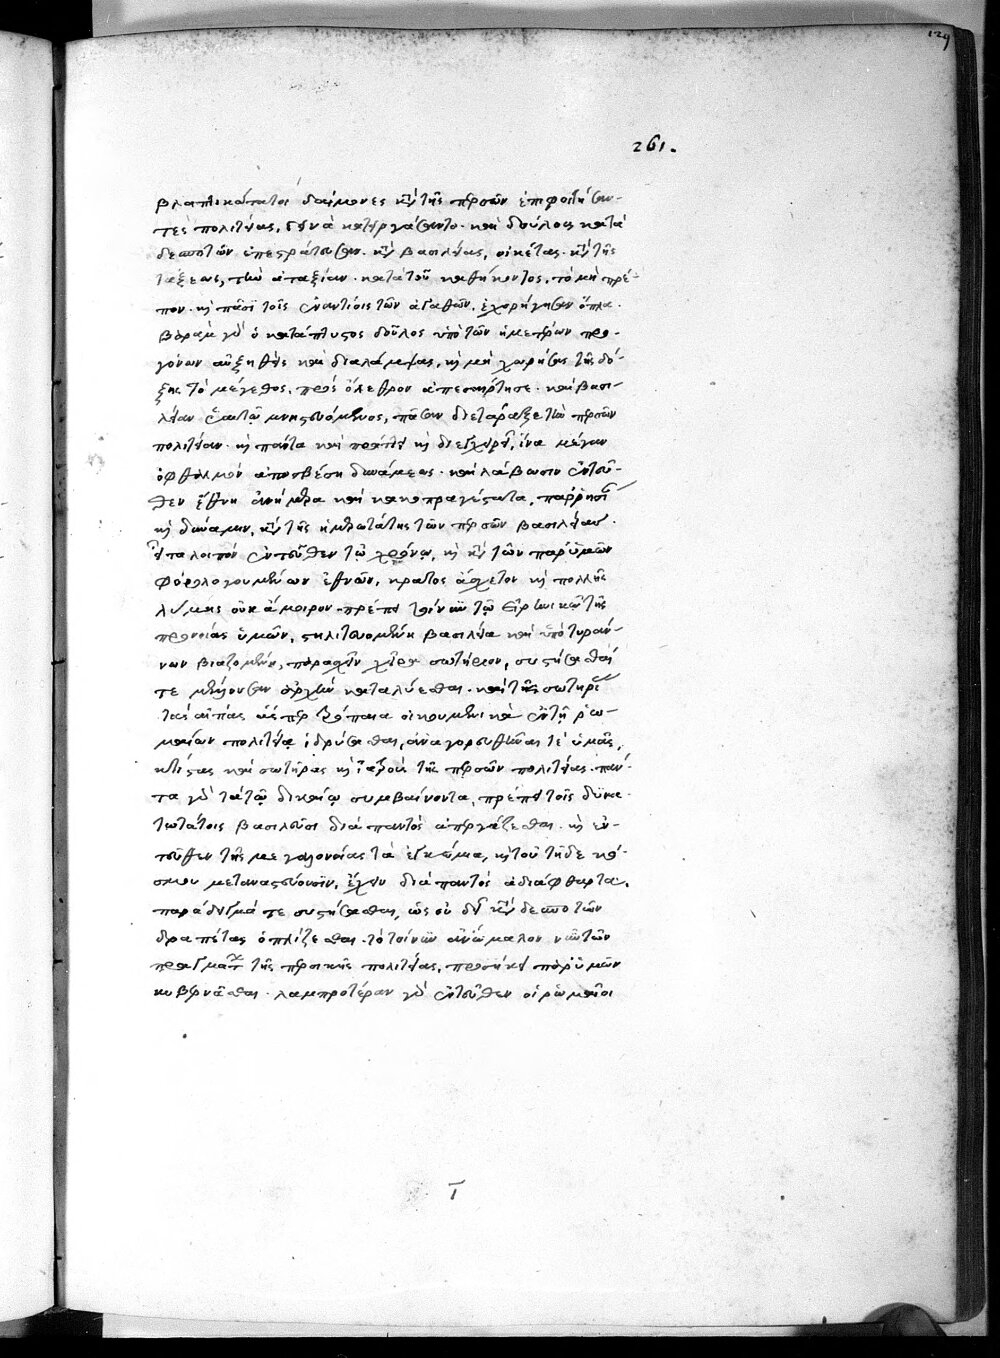 129
261.
βλαπτικώτατοι δαίμονες κατὰ τῆς περσῶν ἐπιφοιτήσαν-
τες πολιτείας, δεινὰ κατειργάσαντο· καὶ δούλους κατὰ
δεσποτῶν ἐπεστράτευσαν· κατὰ βασιλείας, οἰκέτας· κατὰ τῆς
τάξεως, τὴν ἀταξίαν· κατὰ τοῦ καθήκοντος, τὸ μὴ πρέ-
πον· καὶ πᾶσι τοῖς ἐναντίοις τῶν ἀγαθῶν, ἐχορήγησαν ὅπλα·
Βαρὰμ γὰρ ὁ κατάπτυστος δοῦλος ὑπὸ τῶν ἡμετέρων προ-
γόνων αὐξηθεὶς καὶ διαλάμψας, καὶ μὴ χωρήσας τῆς δό-
ξης τὸ μέγεθος, πρὸς ὄλεθρον ἀπεσκίρτησε· καὶ βασι-
λείαν ἑαυτῷ μνηστευόμενος, πᾶσαν διετάραξε τὴν περσῶν
πολιτείαν· καὶ πάντα καὶ πράττει καὶ διεγχειρεῖ, ἵνα μέγαν
ὀφθαλμὸν ἀποσβέσῃ δυνάμεως· καὶ λάβωσιν ἐντεῦ-
θεν ἔθνη ἀνήμερα καὶ κακοπραγέστατα, παρρησίαν
καὶ δύναμιν, κατὰ τῆς ἡμερωτάτης τῶν περσῶν βασιλείας·
εἶτα λοιπὸν ἐντεῦθεν τῷ χρόνῳ, καὶ κατὰ τῶν παρ' ὑμῶν
φορολογουμένων ἐθνῶν, κράτος ἄσχετον καὶ πολλῆς
λύμης οὐκ ἄμοιρον· πρέπει τοίνυν τῷ εἰρηνικῷ τῆς
προνοίας ὑμῶν, στηλιτευομένη βασιλεία καὶ ὑπὸ τυράν-
νων βιαζομένη, παρασχεῖν χεῖρα σωτήριον, συστήσασθαί
τε μέλλουσαν ἀρχὴν καταλύεσθαι· καὶ τῆς σωτηρίας
τὰς αἰτίας ὥσπερ τρόπαια οἰκουμενικὰ ἐν τῇ ῥω-
μαίων πολιτείᾳ ἱδρύσασθαι, ἀναγορευθῆναί τε ὑμᾶς,
κτίστας καὶ σωτῆρας καὶ ἰατροὺς τῆς περσῶν πολιτείας· πάν-
τα γὰρ τὰ τῷ δικαίῳ συμβαίνοντα, πρέπει τοῖς δυνα-
τωτάτοις βασιλεῦσι διὰ παντὸς ἀπεργάζεσθαι· καὶ ἐν-
τεῦθεν τῆς μεγαλονοίας τὰ ἐγκώμια, καὶ τοῦ τῇδε κό-
σμου μεταναστεύουσιν, ἔχειν διὰ παντὸς ἀδιάφθαρτα,
παράδειγμά τε συστήσασθαι, ὡς οὐ δεῖ κατὰ δεσποτῶν
δραπέτας ὁπλίζεσθαι· τὸ τοίνυν ἀνώμαλον νῦν τῶν
πραγμάτων τῆς περσικῆς πολιτείας, προσήκει παρ' ὑμῶν
κυβερνᾶσθαι· λαμπροτέραν γὰρ ἐντεῦθεν οἱ ῥωμαῖοι